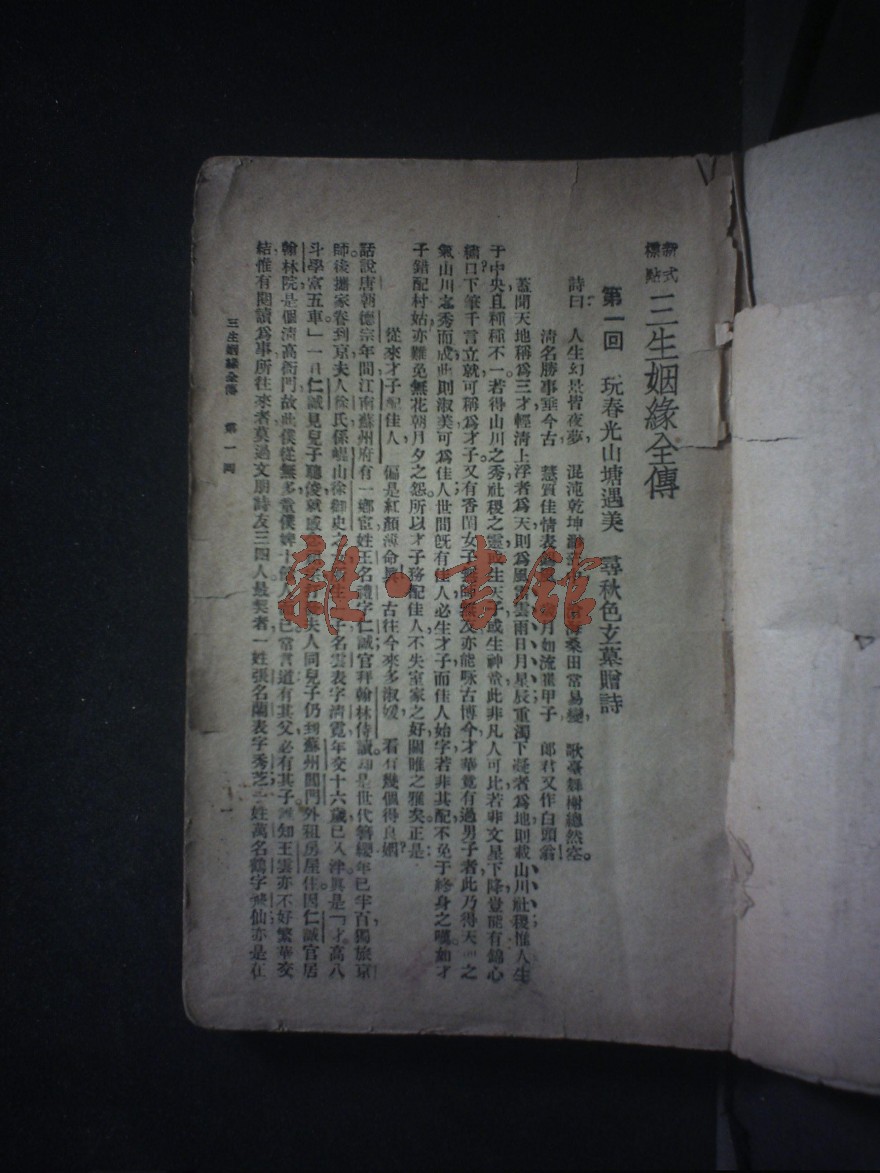 新式標點 三生姻緣全傳
第一回 玩春光山塘遇美 尋秋色玄墓贈詩
詩曰 人生幻景皆夜夢 混沌乾坤 海桑田常易變 歌臺舞榭總然空。
清名勝事垂今古 慧質佳情表 月如流催甲子 郎君又作白頭翁
蓋聞天地稱爲三才輕清上浮者爲天則爲風雲雷雨日月星辰重濁下凝者爲地則載山川社稷惟人生
于中央且種種不一若得山川之秀社稷之靈或生天子或生神 此非凡人可比若非文星下降豈能有錦心
繡口下筆千言立就可稱爲才子又有香閨女子 亦能咏古博今才華竟有過男子者此乃得天 之
氣山川之秀而成此則淑美可爲佳人世間既有佳人必生才子而佳人始字若非其配不免于終身之嘆如才
子錯配村姑亦難免無花朝月夕之怨。所以才子務配佳人不失室家之好關雎之雅矣正是
從來才子配佳人 偏是紅顏薄命 古往今來多淑媛 看有幾個得良姻
話說唐朝德宗年間江南蘇州府有一鄉宦姓王名禮字仁誠官拜翰林侍 是世代簪纓年已半百獨旅京
師後攜家眷到京夫人徐氏係崐山徐御史之 子名雲表字清霓年交十六歲已入泮眞是「才高八
斗學富五車」一日仁誠見兒子聰俊就 夫人同兒子仍到蘇州閶門外租房屋住因仁誠官居
翰林院是個清高衙門故此僕從無多 僕婢十 人 常言道有其父必有其子 知王雲亦不好繁華交
結惟有閱讀爲事所往來者莫過文朋詩友三四人最契者一姓張名蘭表字秀芝 姓萬名鶴字 仙亦是在
三生姻緣全傳 第一回 一
雜·書館